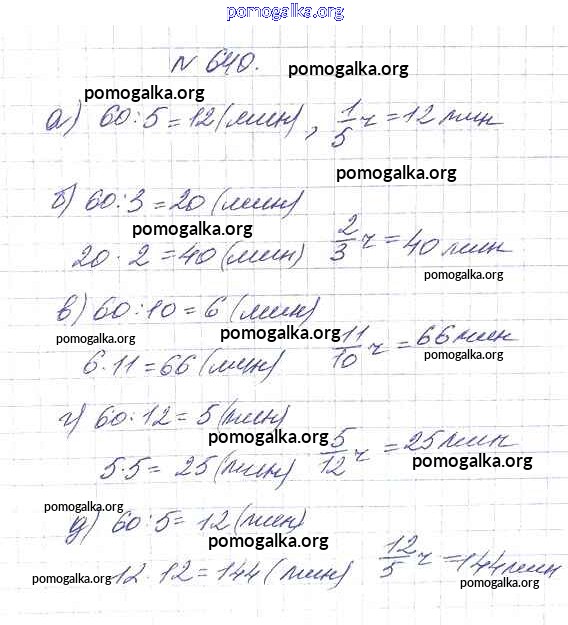 pomogalka.org
N 640.
pomogalka.org
pomogalka.org
а) 60:5=12 (мин), 1/5 ч = 12 мин
pomogalka.org
б) 60:3=20 (мин)
pomogalka.org
20·2=40 (мин) 2/3 ч = 40 мин
pomogalka.org
в) 60:10=6 (мин)
pomogalka.org
pomogalka.org
6·11=66 (мин) 11/10 ч = 66 мин
pomogalka.org
г) 60:12=5 (мин)
pomogalka.org
5·5= 25 (мин) 5/12 ч = 25 мин
pomogalka.org
pomogalka.org
д) 60:5= 12 (мин)
pomogalka.org
pomogalka.org
12·12=144 (мин) 12/5 ч = 144 мин
pomogalka.org